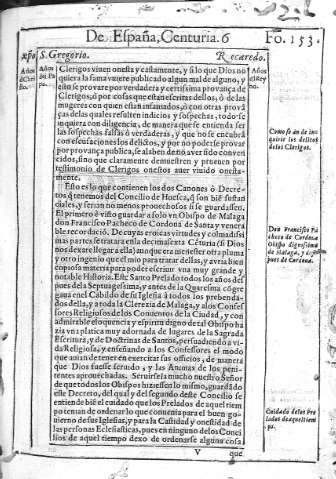 De España, Centuria. 6 Fo. 153.
xpo S. Gregorio. Recaredo.
Años de Cri sto.
Años del Pa pa.
Años del Rey no.
Clerigos viuen onesta y castamente, y si lo que Dios no
quiera la fama vuiere publicado algun mal de alguno, y
esto se prouare por verdadera y certissima prouança de
Clerigos, ò por cosas que estan escritas dellos, ò de las
mugeres con quien estan infamados, ò con otras proua
ças de las quales resulten indicios y sospechas, todo se
inquiera con diligencia, de manera que se entienda ser
las sospechas falsas ò verdaderas, y que no se encubra
con escusaciones los delictos, y por no poderse prouar
por prouança publica, se alaben de no auer sido conuen
cidos, sino que claramente demuestren y prueuen por
testimonio de Clerigos onestos auer viuido onesta-
mente.
Esto es lo que contienen los dos Canones ò Decre-
tos que tenemos del Concilio de Huesca, que son bie sustan
ciales, y serian no menos prouechosos si se guardassen.
El primero è visto guardar a solo vn Obispo de Malaga
don Francisco Pacheco de Cordoua de santa y venera
ble recordació. De cuyas eroicas virtudes y colmadissi
mas partes se tratara en la decima sexta Céturia (si Dios
nos dexare llegar a ella) aunque era menester otra pluma
y otro ingenio que el mio para tratar dellas, y era bien
copiosa materia para poder escriuir vna muy grande y
notable Historia. Este Santo Prelado todos los años des
pues de la Septuagessima, y antes de la Quaresma cogre
gaua en el Cabildo de su Iglesia à todos los prebenda-
dos della, y a toda la Clerezia de Malaga, y a los Confes
sores Religiosos de los Conuentos de la Ciudad, y con
admirable eloquencia y espiritu digno de tal Obispo ha
zia vna platica muy adornada de lugares de la Sagrada
Escritura, y de Doctrinas de Santos, persuadiendo a vi
da Religiosa, y enseñando a los Confessores el modo
que auian de tener en exercitar sus oficios, de manera
que Dios fuesse seruido, y las Animas de los peni-
tentes aprouechadas. Seruirse ia mucho nuestro Señor
de que todos los Obispos hiziessen lo mismo, guardãdo
este Decreto, del qual y del segundo deste Concilio se
entiende biê el cuidado que los Prelados de aquel tiem
po tenian de ordenar lo que conuenia para el buen go-
uierno de sus Iglesias, y para la Castidad y onestidad de
las personas Ecclesiasticas, pues en ninguno de los Conci
lios de aquel tiempo dexo de ordenarse alguna cosa
V que
Como se an de in
quirir los delitos
de los Clerigos.
Don Francisco Pa
checo de Cordoua
Obispo dignissimo
de Malaga, y despues
de Cordoua.
Cuidado de los Pre
lados de aquel tiem
pa.